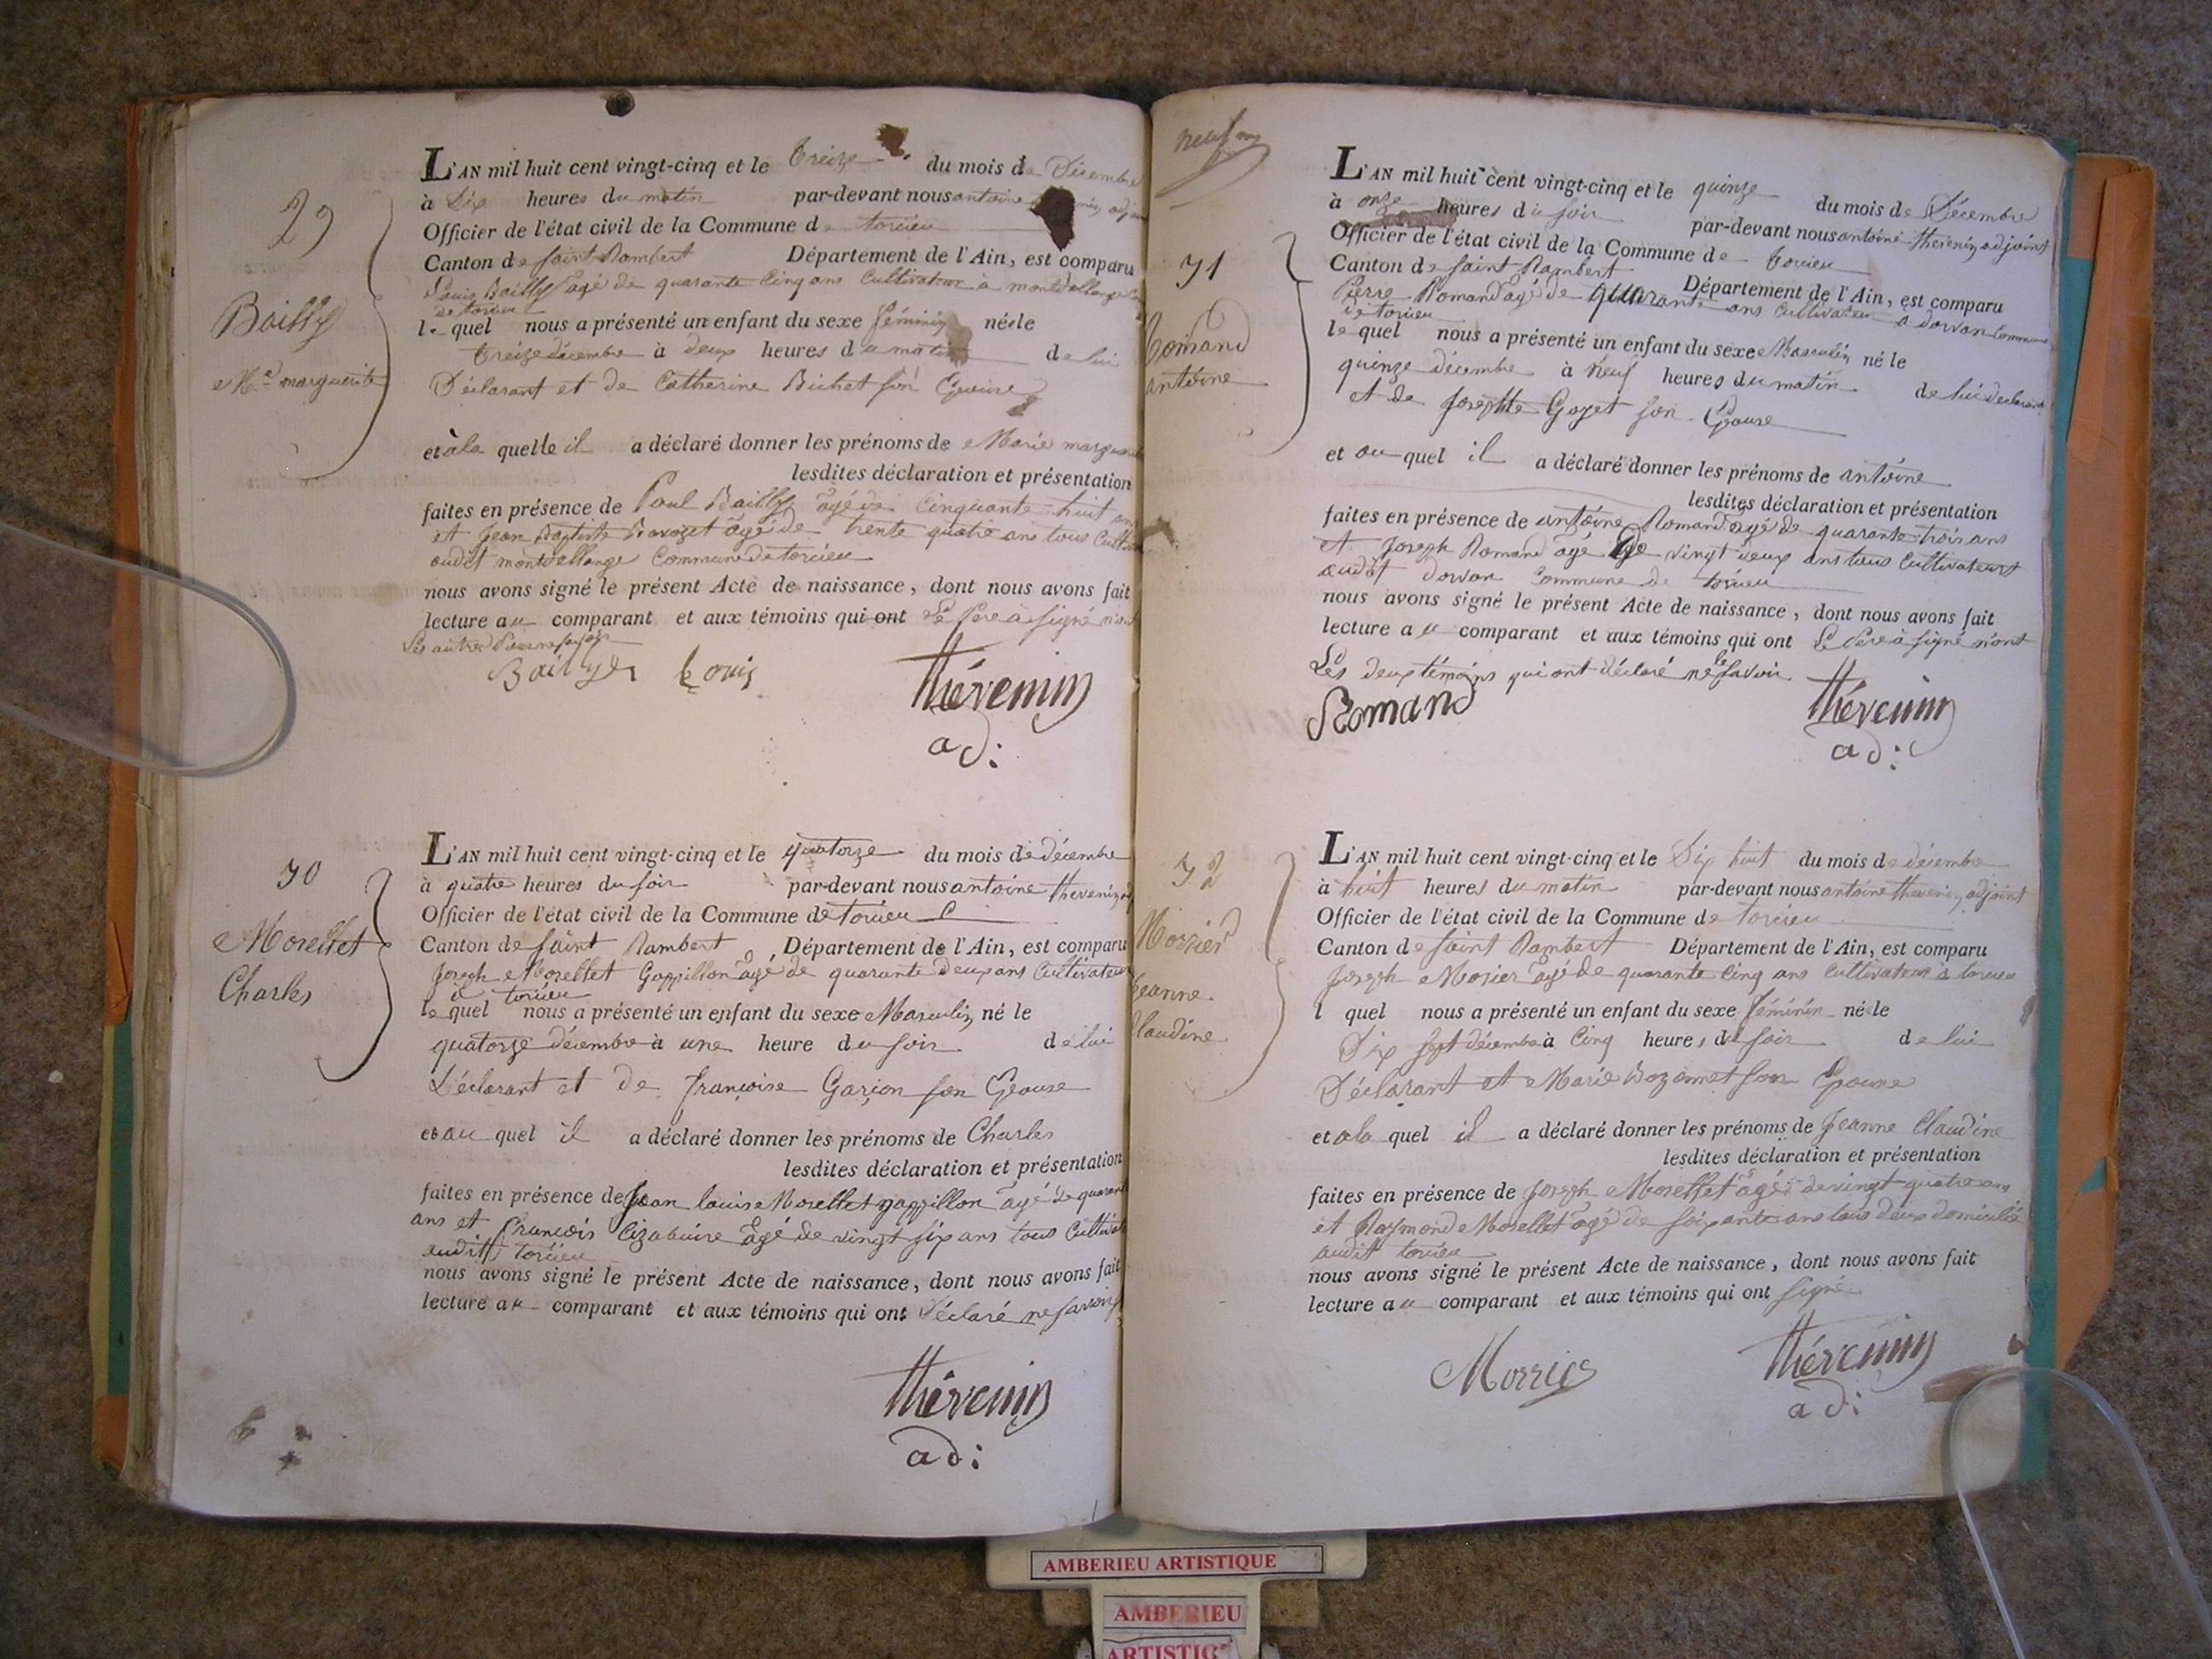 29
Bailly
Mie marguerite
L'AN mil huit cent vingt-cinq et le treize du mois de Décembre
à Dix heures du matin par-devant nous antoine adjoint
Officier de l'état civil de la Commune de torcieu
Canton de saint Rambert Département de l'Ain, est comparu
Louis Bailly agé de quarante cinq ans Cultivateur à montdellange
de torcieu
le quel nous a présenté un enfant du sexe féminin née le
treize décembre à deux heures du matin de lui
Déclarant et de Catherine Bichet son Epouse
et à la quelle il a déclaré donner les prénoms de Marie marguerite
lesdites déclaration et présentation
faites en présence de Paul Bailly agé de cinquante huit ans
et Jean Baptiste agé de trente quatre ans tous Cultiv
audit montdellange Commune de torcieu
nous avons signé le présent Acte de naissance, dont nous avons fait
lecture au comparant et aux témoins qui ont Le Pere à signé n'ont
Les autres
Bailly Louis
thévenin
ad:
30
Morellet
Charles
L'AN mil huit cent vingt-cinq et le quatorze du mois de décembre
à quatre heures du soir par-devant nous antoine thevenin ad
Officier de l'état civil de la Commune de torcieu
Canton de saint Rambert Département de l'Ain, est comparu
Joseph Morellet Gappillon agé de quarante deux ans Cultivateur
à torcieu
le quel nous a présenté un enfant du sexe Masculin né le
quatorze décembre à une heure du soir de lui
Déclarant et de françoise Garçon son Epouse
et au quel il a déclaré donner les prénoms de Charles
lesdites déclaration et présentation
faites en présence de Jean louis Morellet gappillon agé de quarante
ans et françois agé de vingt six ans tous Cultivat
audit torcieu
nous avons signé le présent Acte de naissance, dont nous avons fait
lecture au comparant et aux témoins qui ont Déclaré ne savoir
thévenin
ad:
31
Romand
antoine
L'AN mil huit cent vingt-cinq et le quinze du mois de Décembre
à onze heures du soir par-devant nous antoine thevenin adjoint
Officier de l'état civil de la Commune de torcieu
Canton de saint Rambert Département de l'Ain, est comparu
Pierre Romand agé de quarante ans Cultivateur à dorvan Commune
de torcieu
le quel nous a présenté un enfant du sexe Masculin né le
quinze décembre à neuf heures du matin de lui declarant
et de Josephte Goyet son Epouse
et au quel il a déclaré donner les prénoms de antoine
lesdites déclaration et présentation
faites en présence de antoine Romand agé de quarante trois ans
et Joseph Romand agé de vingt deux ans tous Cultivateurs
audit dorvan Commune de torcieu
nous avons signé le présent Acte de naissance, dont nous avons fait
lecture au comparant et aux témoins qui ont Le Pere à signé n'ont
Les deux témoins qui ont déclaré ne le savoir
Romand
thévenin
ad:
32
Morrier
Jeanne
Claudine
L'AN mil huit cent vingt-cinq et le Dix huit du mois de décembre
à huit heures du matin par-devant nous antoine thevenin adjoint
Officier de l'état civil de la Commune de torcieu
Canton de saint Rambert Département de l'Ain, est comparu
Joseph Morier agé de quarante cinq ans Cultivateur à torcieu
l quel nous a présenté un enfant du sexe féminin née le
Dix sept décembre à cinq heures du soir de lui
Déclarant et Marie Bozonnet son Epouse
et a la quel il a déclaré donner les prénoms de Jeanne Claudine
lesdites déclaration et présentation
faites en présence de Joseph Morellet agé de vingt quatre ans
et Raymond Morellet agé de soixante ans tous deux domicilié
audit torcieu
nous avons signé le présent Acte de naissance, dont nous avons fait
lecture au comparant et aux témoins qui ont signé
Morrier
thévenin
ad:
AMBERIEU ARTISTIQUE
AMBERIEU
ARTISTIC